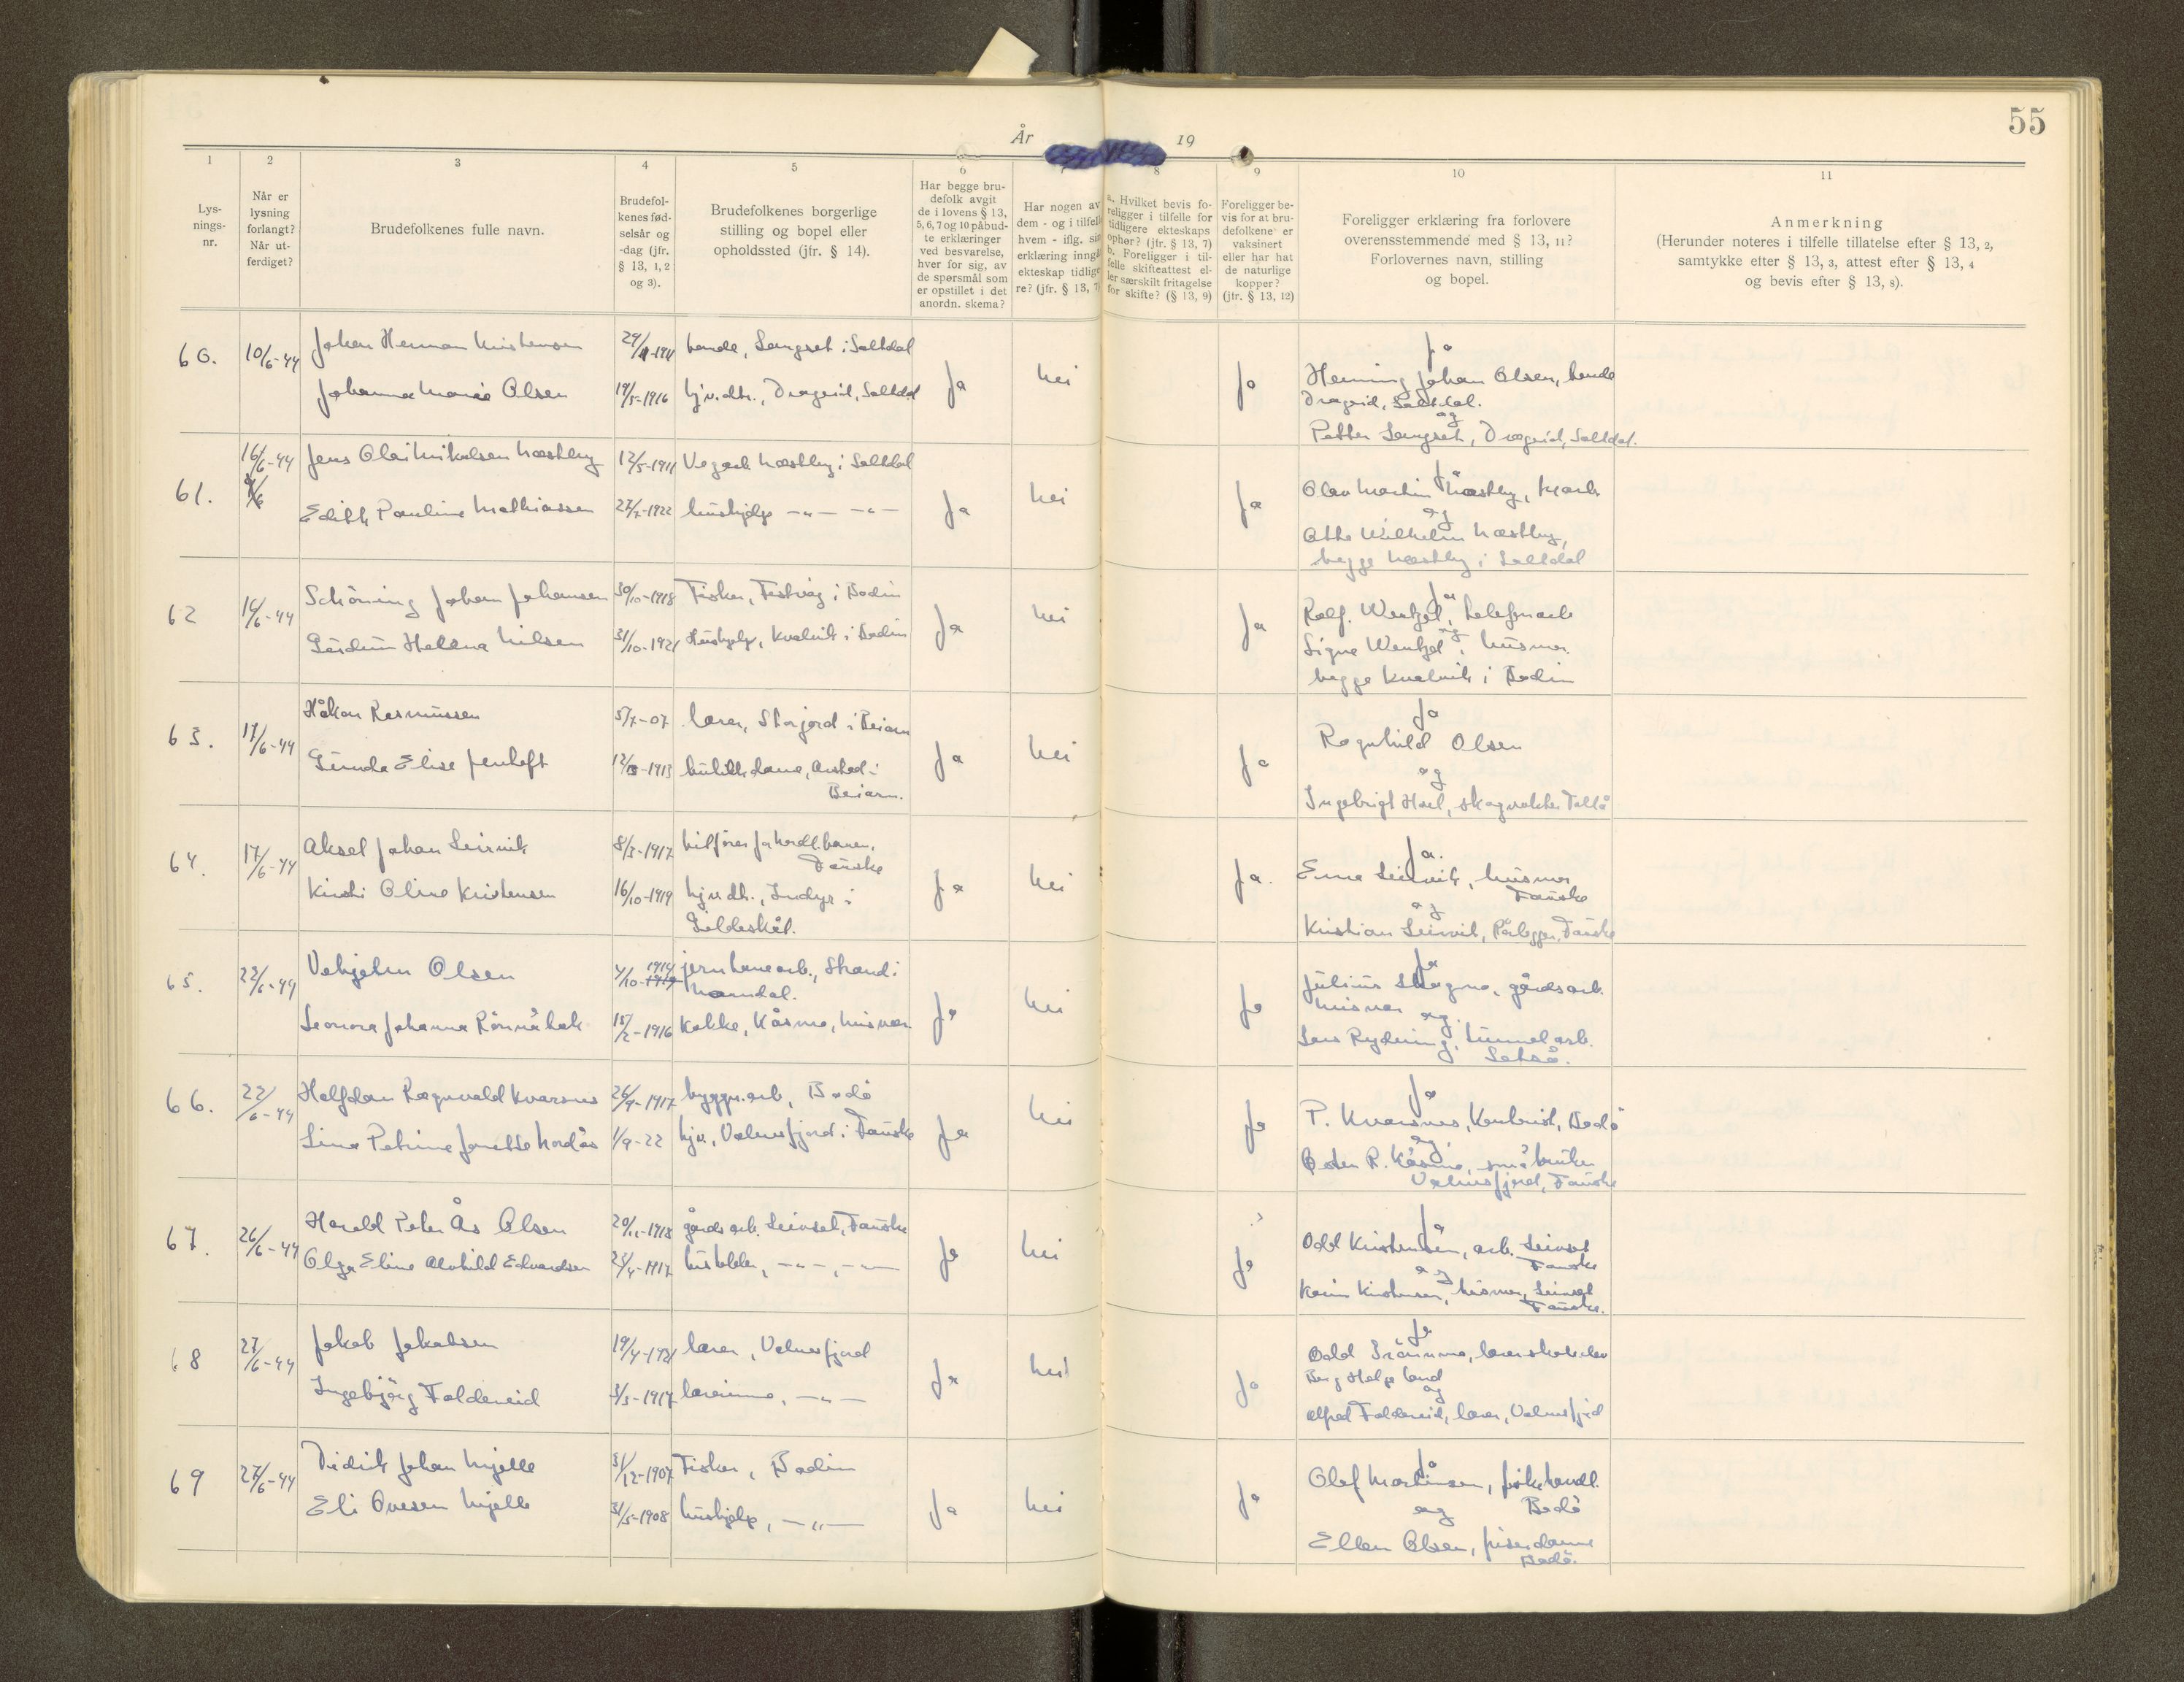 55
År 19
1
Lys-
nings-
nr.
2
Når er
lysning
forlangt?
Når ut-
ferdiget?
3
Brudefolkenes fulle navn.
4
Brudefol-
kenes fød-
selsår og
-dag (jfr.
§ 13, 1, 2
og 3).
5
Brudefolkenes borgerlige
stilling og bopel eller
opholdssted (jfr. § 14).
6
Har begge bru-
defolk avgit
de i lovens § 13,
5, 6, 7 og 10 påbud-
te erklæringer
ved besvarelse,
hver for sig, av
de spørsmål som
er opstillet i det
anordn. skema?
Har nogen av
dem - og i tilfelle
hvem - iflg. sin
erklæring inngå
ekteskap tidlige
re? (jfr. § 13, 7)
8
a. Hvilket bevis fo-
religger i tilfelle for
tidligere ekteskaps
ophør? (jfr. § 13, 7)
b. Foreligger i til-
felle skifteattest el-
ler særskilt fritagelse
for skifte? (§ 13, 9)
9
Foreligger be-
vis for at bru-
defolkene er
vaksinert
eller har hat
de naturlige
kopper?
(jfr. § 13, 12)
10
Foreligger erklæring fra forlovere
overensstemmende med § 13, 11?
Forlovernes navn, stilling
og bopel.
11
Anmerkning
(Herunder noteres i tilfelle tillatelse efter § 13, 2,
samtykke efter § 13, 3, attest efter § 13, 4
og bevis efter § 13, 8).
60. 10/6-44 Johan Herman Kristensen bonde, Langset i Saltdal
Johanna Marie Olsen 19/5-1916 hjv. dtr., Drageid, Saltdal
Ja Nei Ja
Ja
Henning Johan Olsen, bonde
Drageid, Saltdal.
og
Petter Langset, Drageid, Saltdal.
61. 16/6-44 Jens Olai Mikalsen Næstby 12/5-1911 Vegarb. Næstby i Saltdal
Edith Pauline Mathiassen 27/7-1922 hushjelp -"- -"-
Ja Nei Ja
Ja
Olav Martin Næstby,
og
Otto Wilhelm Næstby,
begge Næstby i Saltdal
62 16/6-44 Schöning Johan Johansen 30/10-1918 Fisker, Festvåg i Bodin
Gudrun Helena Nilsen 31/10-1921 Hushjelp, Kvalvik i Bodin
Ja Nei Ja
Ja
Rolf. Wentzel, telefonarb
og
Signe Wentzel, husmor
begge Kvalvik i Bodin
63. 17/6-44 Håkon Rasmussen 5/7-07 lærer, Storjord i Beiarn
Gunda Elise Jentoft 12/8-1913 butikkdame, Arstad i
Beiarn.
Ja Nei Ja
Ja
Ragnhild Olsen
og
Ingebrigt Hoel, skogvokter Tollå
64. 17/6-44 Aksel Johan Leirvik 8/3-1917 bilfører for Nordl.banen,
Fauske
Kirsti Oline Kristensen 16/10-1919 hjv. dtr., Inndyr i
Gildeskål.
Ja Nei Ja.
Ja.
Erna Leirvik, husmor
Fauske
og
Kristian Leirvik, Rørlegger, Fauske
65. 22/6-44 Vehjelm Olsen 4/10-1914 jernbanearb., Strand i
Namdal.
Leonora Johanna Rönnåbak 15/2-1916 Kokke, Kåsmo, Misvær
Ja Nei Ja
Ja
Julius Skagmo, gårdsarb.
Misvær og
Lars Rydning, tunnelarb.
Setså.
66. 22/6-44 Halfdan Ragnvald Kvarsnes 26/9-1917 byggn.arb, Bodö
Lina Petrine Janette Nordås 1/9-22 hjv., Valnesfjord i Fauske
Ja Nei Ja
Ja
P. Kvarsnes, Kontorist, Bodö
og
Peder R. Kåsmo, småbruker
Valnesfjord, Fauske
67. 26/6-44 Harald Peter Ås Olsen 20/11-1918 gårdsarb. Leivset, Fauske
Olga Eline Alvhild Edvardsen 23/4-1917 -"-, -"-
Ja Nei Ja
Ja
Odd Kristensen, arb. Leivset
Fauske
og
Karin Kristensen, husmor, Leivset
Fauske.
68 27/6-44 Jakob Jakobsen 19/4-1921 lærer, Valnesfjord
Ingebjörg Foldereid 3/3-1917 lærerinne, -"-
Ja Nei Ja
Ja
Odd lærerskoleelev
Berg Helgeland
og
Alfred Foldereid, lærer, Valnesfjord
69 27/6-44 Didrik Johan Mjelle 31/12-1907 Fisker, Bodin
Eli Ovesen Mjelle 31/5-1908 hushjelp, -"-
Ja Nei Ja
Ja
Olaf Martinsen, fiskehandl.
og Bodö
Ellen Olsen, frisørdame
Bodö.